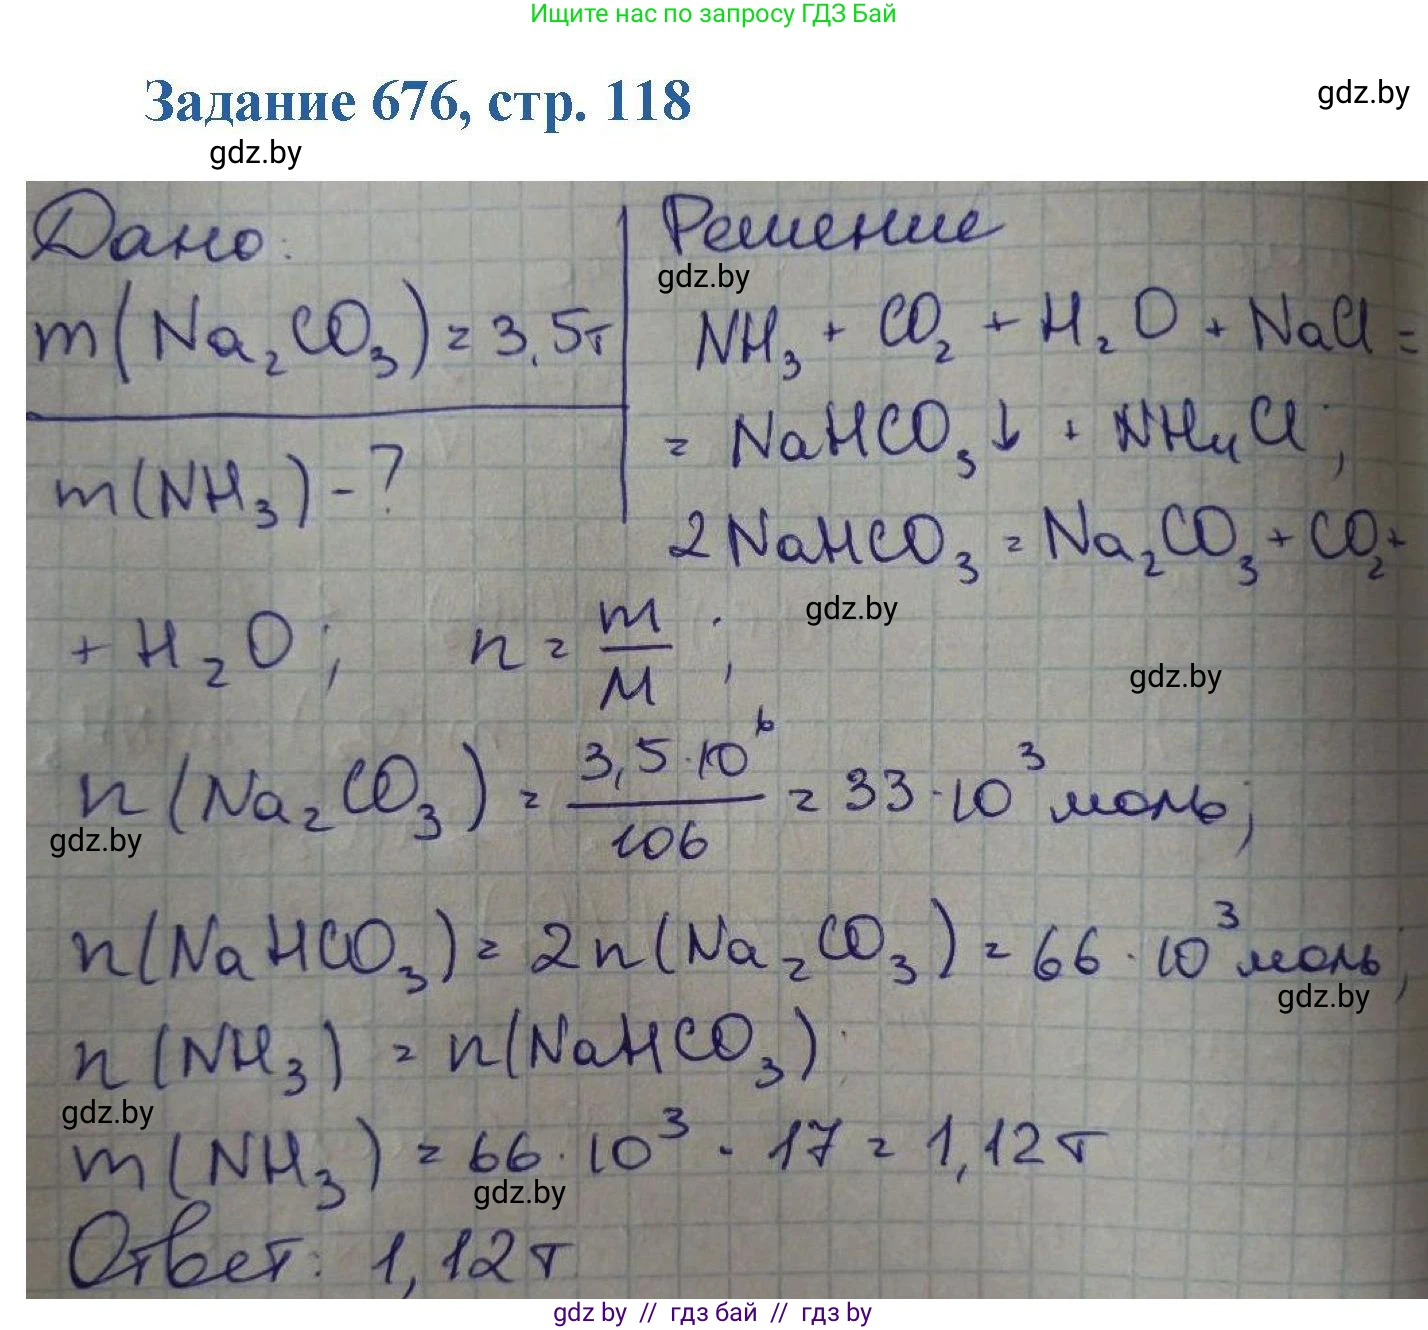 Ищите нас по запросу ГДЗ Бай
Задание 676, стр. 118
gdz.by
gdz.by
Дано:
Решение
gdz.by
m(Na₂CO₃) = 3,5т
NH₃ + CO₂ + H₂O + NaCl =
= NaHCO₃↓ + NH₄Cl;
m(NH₃) - ?
2NaHCO₃ = Na₂CO₃ + CO₂ +
gdz.by
+ H₂O; n = m/M;
gdz.by
n(Na₂CO₃) = 3,5·10⁶/106 = 33·10³ моль;
gdz.by
n(NaHCO₃) = 2n(Na₂CO₃) = 66·10³ моль;
gdz.by
n(NH₃) = n(NaHCO₃)
gdz.by
m(NH₃) = 66·10³ · 17 = 1,12т
gdz.by
Ответ: 1,12т
gdz by // гдз бай // гдз by